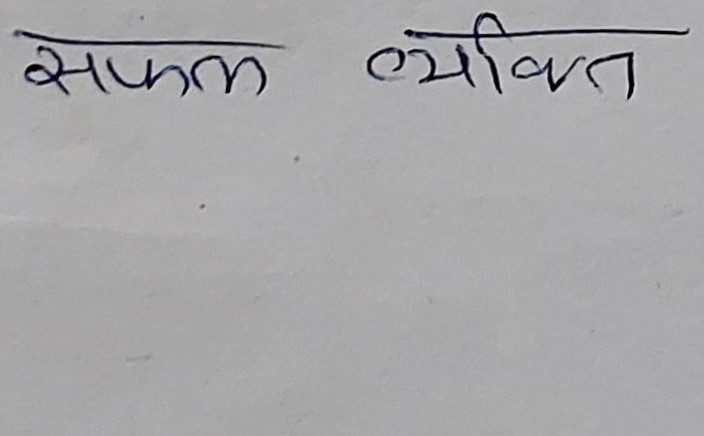 सफल व्यक्ति